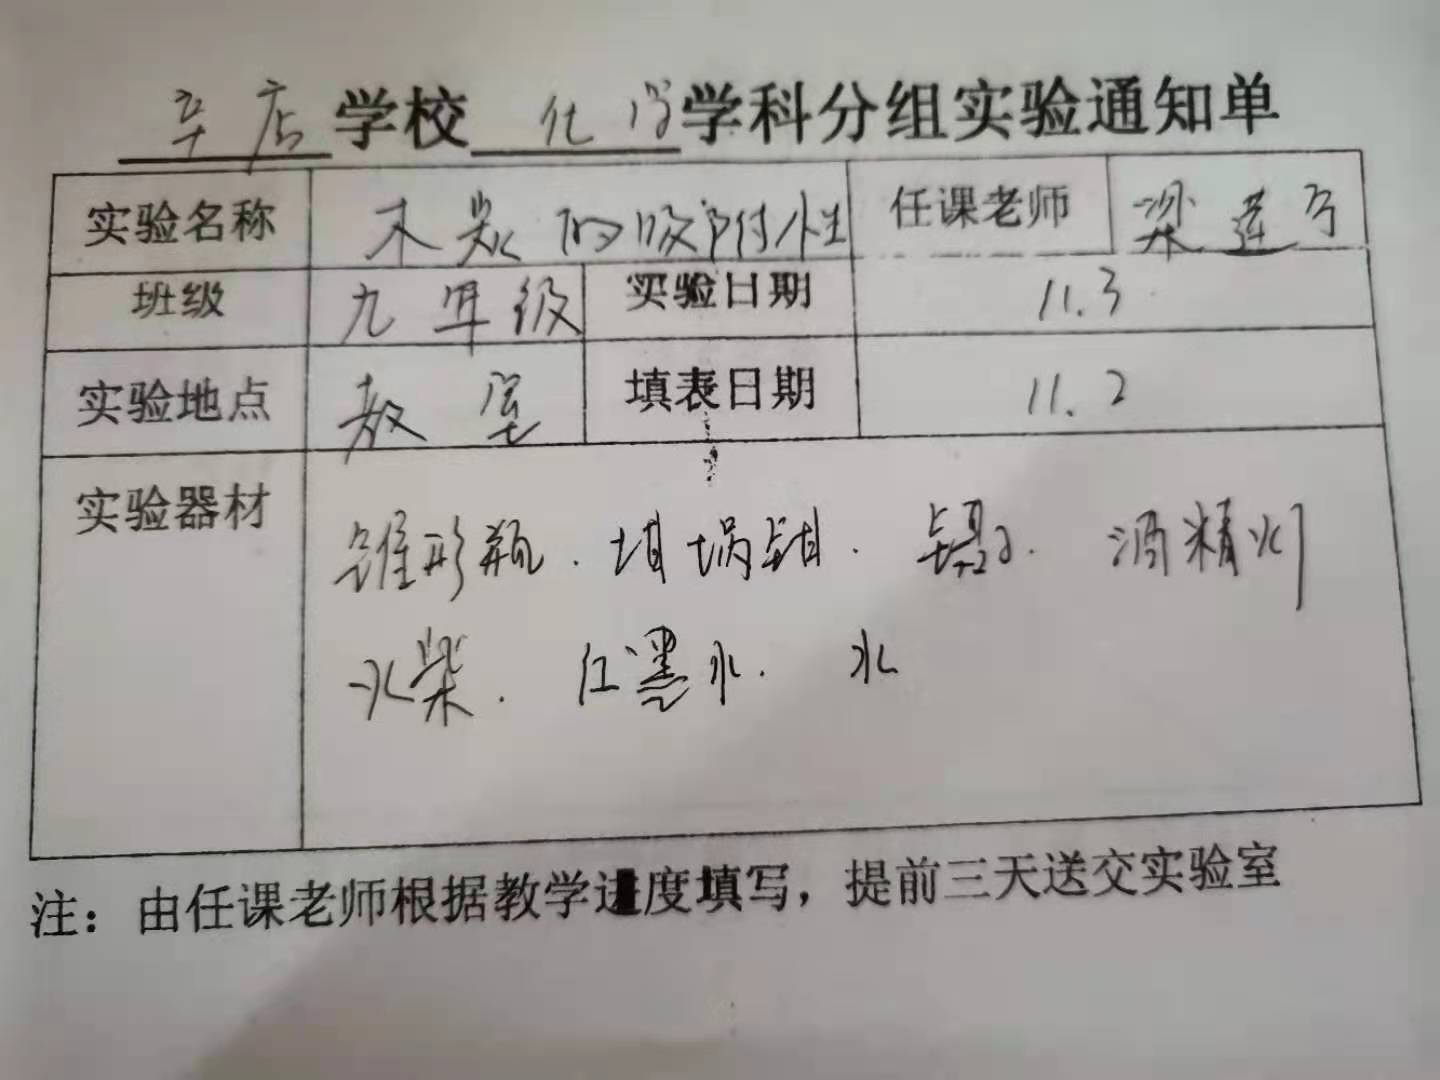 辛店学校化学学科分组实验通知单
实验名称 木炭的吸附性 任课老师 梁莲
班级 九年级 实验日期 11.3
实验地点 教室 填表日期 11.2
实验器材 锥形瓶.坩埚钳.镊子.酒精灯
火柴.红墨水.水
注：由任课老师根据教学进度填写，提前三天送交实验室